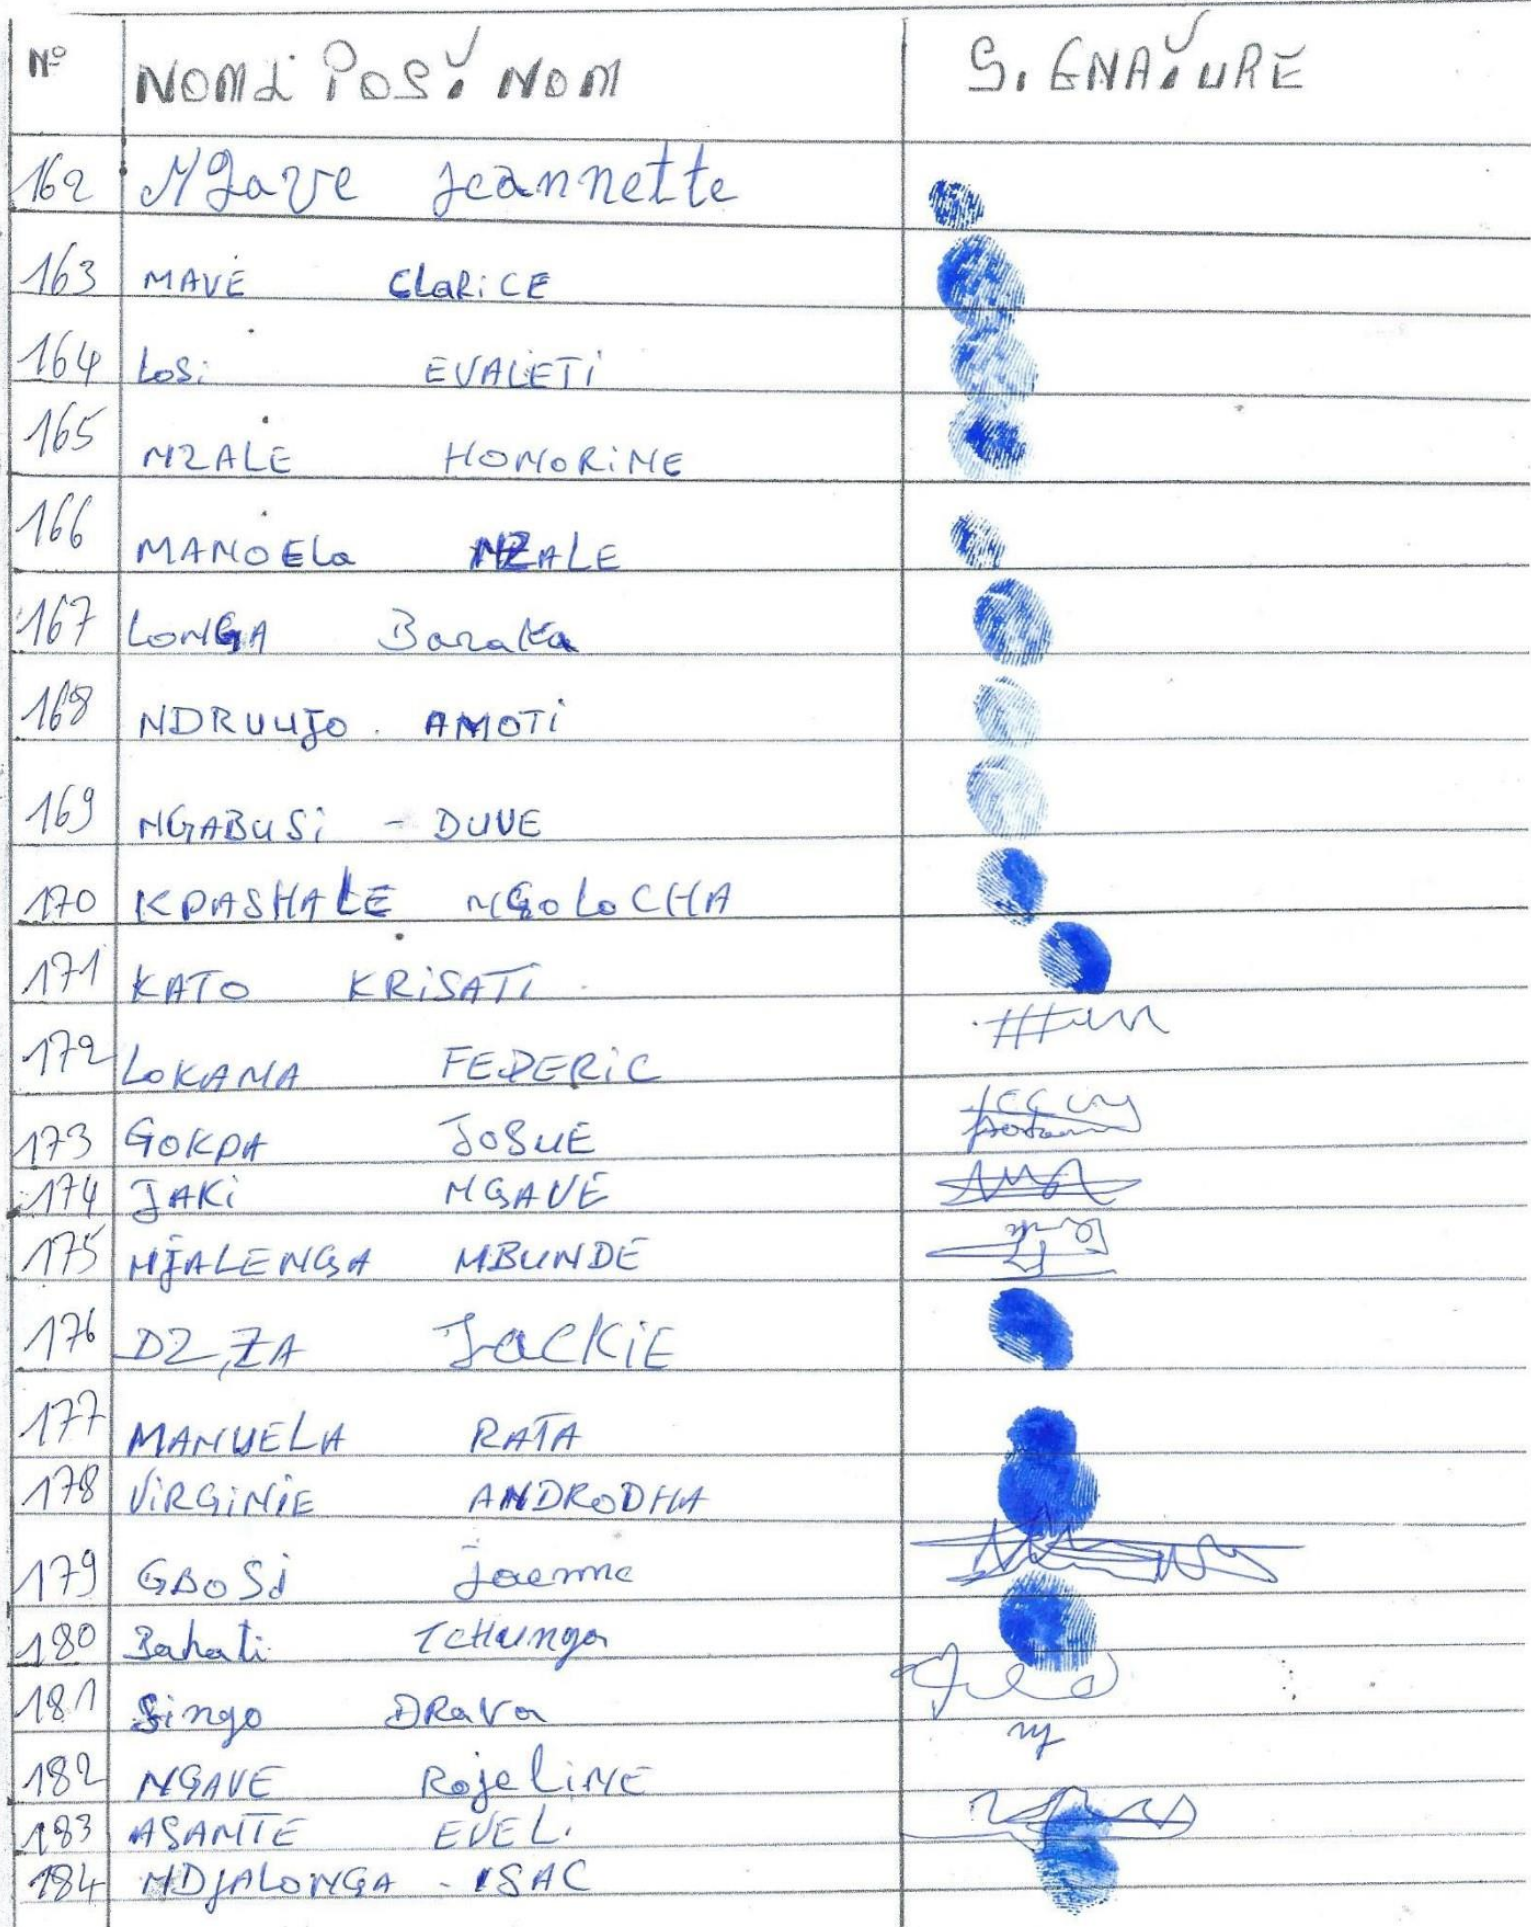 Nº NOM & POST NOM SIGNATURE
162 NGave Jeannette
163 MAVE CLARiCE
164 LoSi EVALETi
165 NZALE HONORiNE
166 MANOELa NZALE
167 LONGA Baraka
168 NDRUUJO. AMOTi
169 NGABUSi - DUVE
170 KPASHALE NGOLOCHA
171 KATO KRiSATi
172 LOKANA FEDERiC
173 GOKPA JOSUE
174 JAKi NGAVE
175 NJALENGA MBUNDE
176 DZ,ZA JaCKiE
177 MANUELA RATA
178 ViRGiNiE ANDRODHA
179 GBOSi
180 Bahati TCHunga
181 Singo DRaVa
182 NGAVE RojeLiNE
183 ASANTE EVEL.
184 NDJALONGA - ISAC